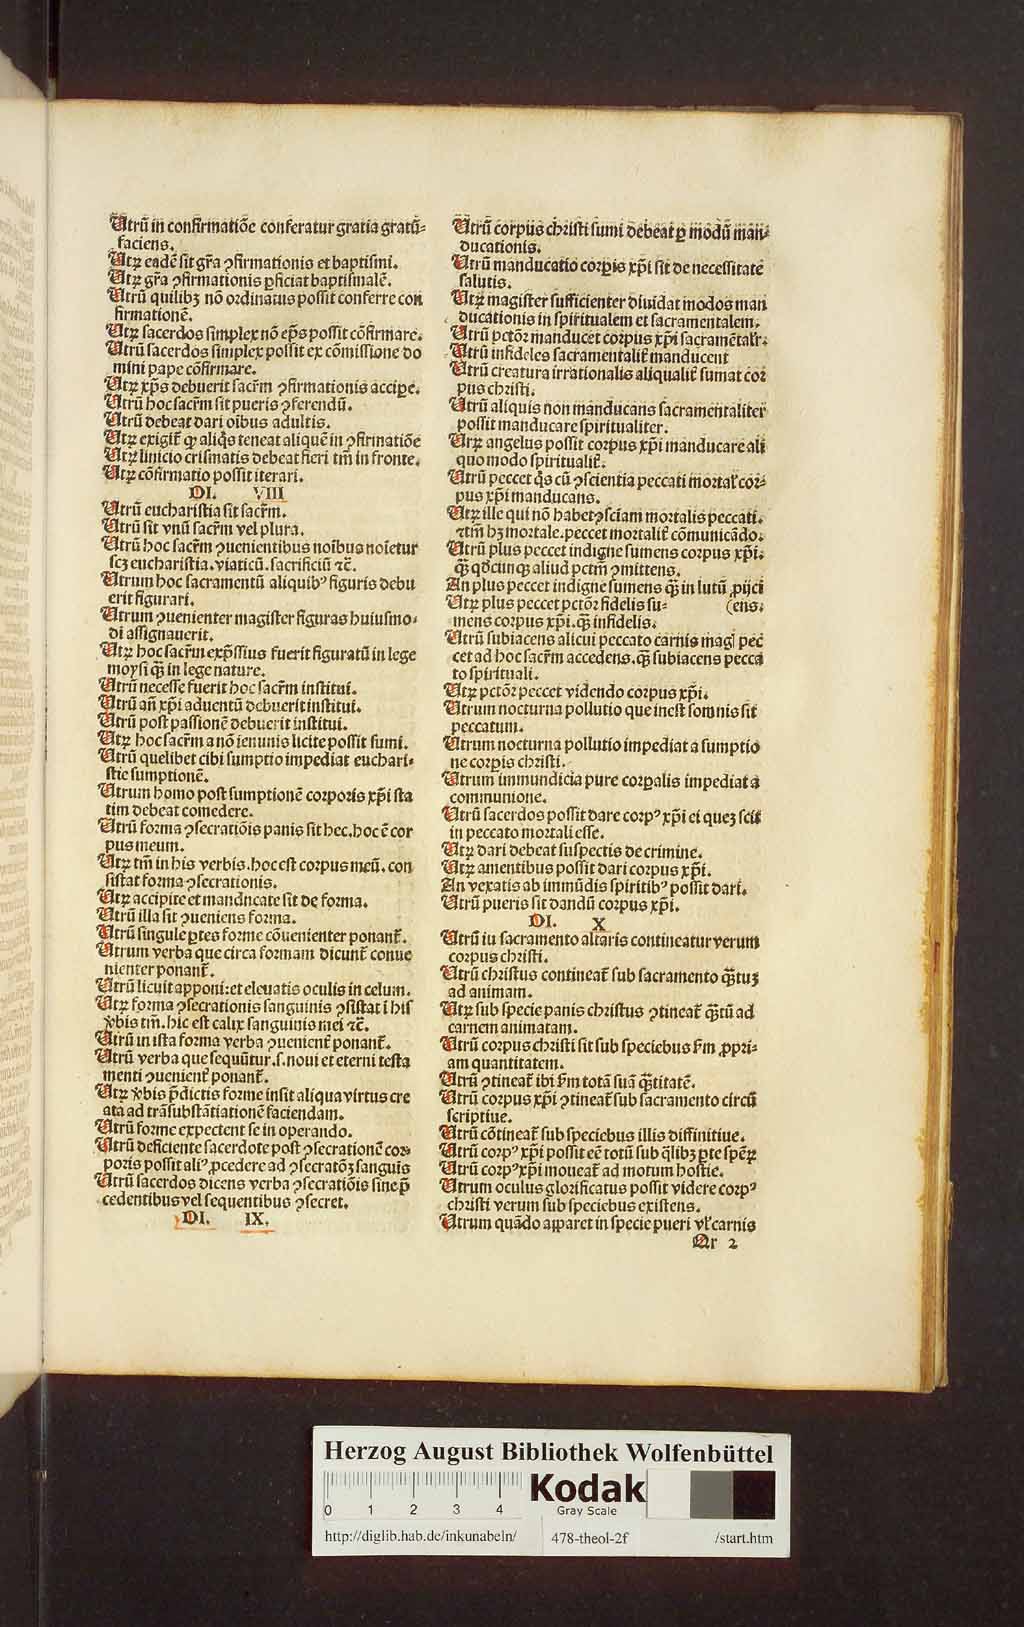 Utrū in confirmatiōe conferatur gratia gratū-
faciens.
Utꝝ eadē sit gr̄a ꝯfirmationis et baptismi.
Utꝝ gr̄a ꝯfirmationis ꝑficiat baptismalē.
Utrū quilibꝫ nō ordinatus possit conferre con
firmationē.
Utꝝ sacerdos simplex nō ep̄s possit cōfirmare.
Utrū sacerdos simplex possit ex cōmissione do
mini pape cōfirmare.
Utꝝ xp̄s debuerit sacr̄m ꝯfirmationis accipe.
Utrū hoc sacr̄m sit pueris ꝯferendū.
Utrū debeat dari oībus adultis.
Utꝝ exigit̄ ꝙ aliq̇s teneat aliquē in ꝯfirmatiōe
Utꝝ linicio crismatis debeat fieri tm̄ in fronte.
Utꝝ cōfirmatio possit iterari.
DI. VIII
Utrū eucharistia sit sacr̄m.
Utrū sit vnū sacr̄m vel plura.
Utrū hoc sacr̄m ꝯuenientibus noībus noīetur
scꝫ eucharistia. viaticū. sacrificiū ⁊c̄.
Utrum hoc sacramentū aliquibꝰ figuris debu
erit figurari.
Utrum ꝯuenienter magister figuras huiusmo-
di assignauerit.
Utꝝ hoc sacr̄m exp̄ssius fuerit figuratū in lege
moysi q̄ꝫ in lege nature.
Utrū necesse fuerit hoc sacr̄m institui.
Utrū an̄ xp̄i aduentū debuerit institui.
Utrū post passionē debuerit institui.
Utꝝ hoc sacr̄m a nō ieiunis licite possit sumi.
Utrū quelibet cibi sumptio impediat euchari-
stie sumptionē.
Utrum homo post sumptionē corporis xp̄i sta
tim debeat comedere.
Utrū forma ꝯsecratiōis panis sit hec. hoc ē cor
pus meum.
Utꝝ tm̄ in his verbis. hoc est corpus meū. con
sistat forma ꝯsecrationis.
Utꝝ accipite et mandncate sit de forma.
Utrū illa sit ꝯueniens forma.
Utrū singule ꝑtes forme cōuenienter ponant̄.
Utrum verba que circa formam dicunt̄ conue
nienter ponant̄.
Utrū licuit apponi: et eleuatis oculis in celum.
Utꝝ forma ꝯsecrationis sanguinis ꝯsistat ī his
v̇bis tm̄. hic est calix sanguinis mei ⁊c̄.
Utrū in ista forma verba ꝯuenient̄ ponant̄.
Utrū verba que sequūtur. s. noui et eterni testa
menti ꝯuenient̄ ponant̄.
Utꝝ v̇bis p̄dictis forme insit aliqua virtus cre
ata ad trāsubstātiationē faciendam.
Utrū forme expectent se in operando.
Utrū deficiente sacerdote post ꝯsecrationē cor-
poris possit aliꝰ ꝓcedere ad ꝯsecratōꝫ sanguīs
Utrū sacerdos dicens verba ꝯsecratiōis sine p̄
cedentibus vel sequentibus ꝯsecret.
DI. IX.
Utrū corpus christi sumi debeat ꝑ modū man-
ducationis.
Utrū manducatio corꝑis xp̄i sit de necessitate
salutis.
Utꝝ magister sufficienter diuidat modos man
ducationis in spiritualem et sacramentalem.
Utrū pctōr manducet corpus xp̄i sacramētalr̄.
Utrū infideles sacramentalit̄ manducent
Utrū creatura irrationalis aliqualit̄ sumat cor
pus christi.
Utrū aliquis non manducans sacramentaliter
possit manducare spiritualiter.
Utꝝ angelus possit corpus xp̄i manducare ali
quo modo spiritualit̄.
Utrū peccet q̇s cū ꝯscientia peccati mortal̄ cor-
pus xp̄i manducans.
Utꝝ ille qui nō habet ꝯsciam mortalis peccati.
⁊tm̄ hꝫ mortale. peccet mortalit̄ cōmunicādo.
Utrū plus peccet indigne sumens corpus xp̄i.
q̄ꝫ qdcūnqꝫ aliud pctm̄ ꝯmittens.
An plus peccet indigne sumens q̄ꝫ in lutū ꝓijci
Utꝝ plus peccet pctōr fidelis su- (ens.
mens corpus xp̄i. q̄ꝫ infidelis.
Utrū subiacens alicui peccato carnis mag̛ pec
cet ad hoc sacr̄m accedens. q̄ꝫ subiacens pecca
to spirituali.
Utꝝ pctōr peccet videndo corpus xp̄i.
Utrum nocturna pollutio que inest somnis sit
peccatum.
Utrum nocturna pollutio impediat a sumptio
ne corꝑis christi.
Utrum immundicia pure corꝑalis impediat a
communione.
Utrū sacerdos possit dare corpꝰ xp̄i ei queꝫ scit
in peccato mortali esse.
Utꝝ dari debeat suspectis de crimine.
Utꝝ amentibus possit dari corpus xp̄i.
An vexatis ab immūdis spiritibꝰ possit dari.
Utrū pueris sit dandū corpus xp̄i.
DI. X
Utrū iu sacramento altaris contineatur verum
corpus christi.
Utrū christus contineat̄ sub sacramento q̄ꝫtuꝫ
ad animam.
Utꝝ sub specie panis christus ꝯtineat̄ q̄ꝫtū ad
carnem animatam.
Utrū corpus christi sit sub speciebus fm̄ ꝓpri-
am quantitatem.
Utrū ꝯtineat̄ ibi fm̄ totā suā q̄ꝫtitatē.
Utrū corpus xp̄i ꝯtineat̄ sub sacramento circū
scriptiue.
Utrū cōtineat̄ sub speciebus illis diffinitiue.
Utrū corpꝰ xp̄i possit eē totū sub q̇libꝫ ꝑte spēꝝ
Utrū corpꝰ xp̄i moueat̄ ad motum hostie.
Utrum oculus glorificatus possit videre corpꝰ
christi verum sub speciebus existens.
Utrum quādo apparet in specie pueri vl̄ carnis
Ar 2
Herzog August Bibliothek Wolfenbüttel
0 1 2 3 4
Kodak
Gray Scale
http://diglib.hab.de/inkunabeln/ 478-theol-2f /start.htm